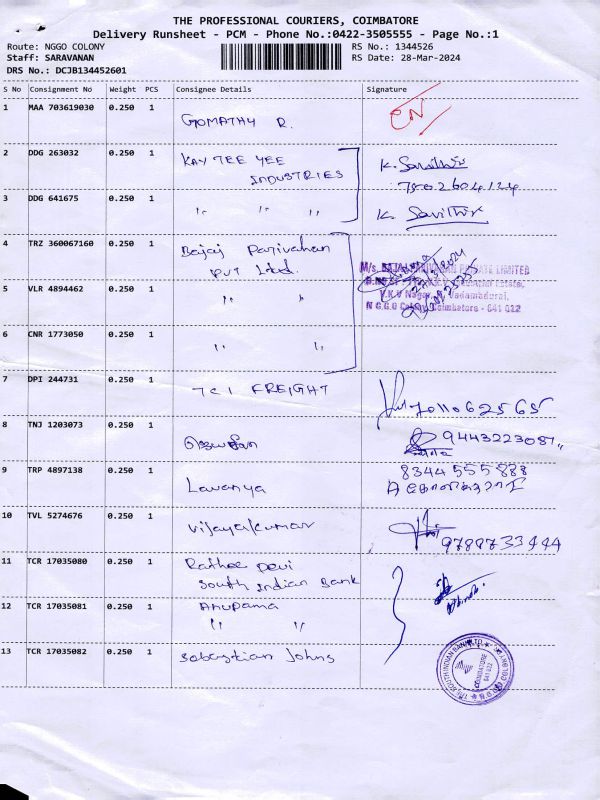 THE PROFESSIONAL COURIERS, COIMBATORE
Delivery Runsheet - PCM - Phone No.:0422-3505555 - Page No.:1
Route: NGGO COLONY RS No.: 1344526
Staff: SARAVANAN RS Date: 28-Mar-2024
DRS No.: DCJB134452601
S No Consignment No Weight PCS Consignee Details Signature
1 MAA 703619030 0.250 1 GOMATHY R. CN
2 DDG 263032 0.250 1 KAY TEE YEE
INDUSTRIES K. Savithiri
7502604124
3 DDG 641675 0.250 1 " " " K. Savithiri
4 TRZ 360067160 0.250 1 Bajaj Parivahan
PVT Ltd.
5 VLR 4894462 0.250 1 " "
V.K.V Nagar, Vadamadurai,
N G G O Colony, Coimbatore - 641 022
6 CNR 1773050 0.250 1 " "
7 DPI 244731 0.250 1 TCI FREIGHT 7011062565
8 TNJ 1203073 0.250 1 9443223087
9 TRP 4897138 0.250 1 Lavanya 8344555888
10 TVL 5274676 0.250 1 Vijayakumar 9789733444
11 TCR 17035080 0.250 1 Rathee Devi
South Indian Bank
12 TCR 17035081 0.250 1 Anupama
" "
13 TCR 17035082 0.250 1 Sabastian Johns
COIMBATORE
641 022